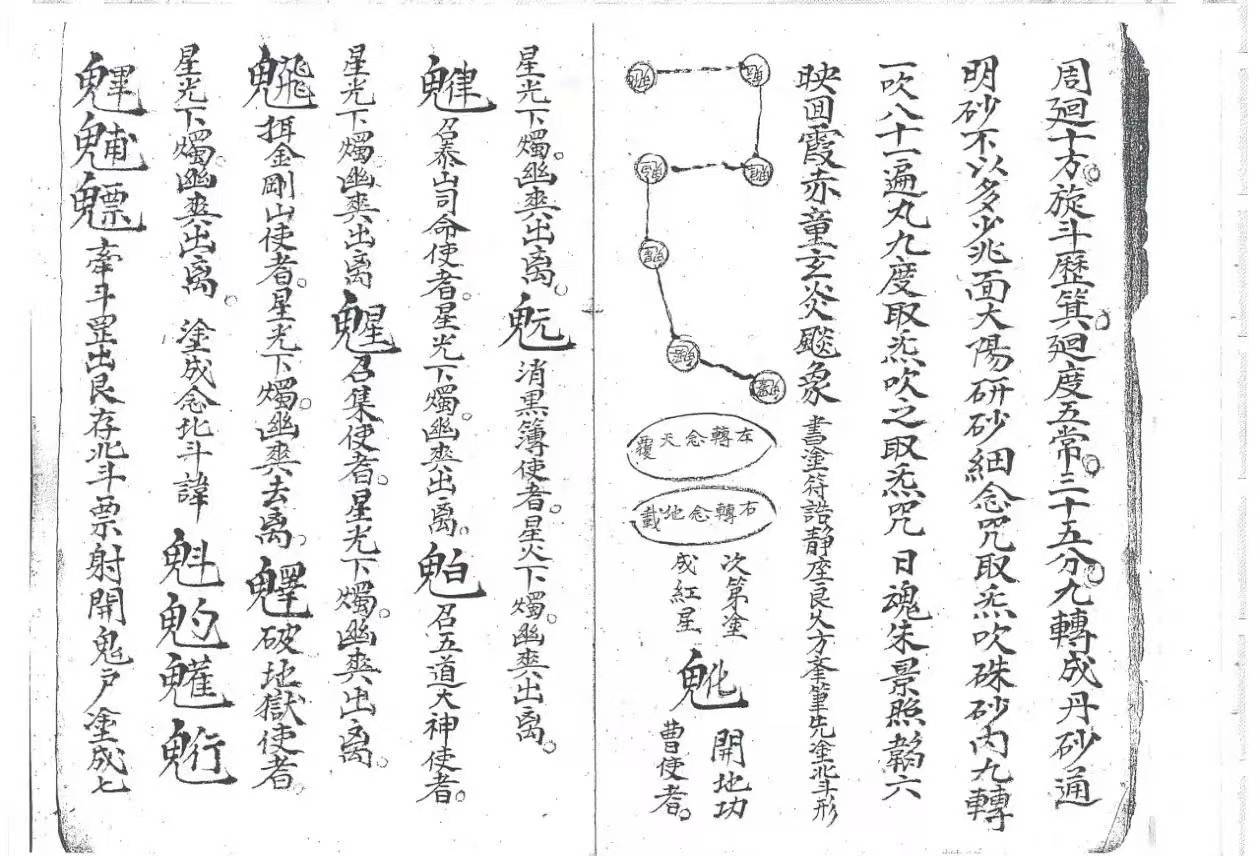 周廻十方。旋斗歷箕。廻度五常。三十五分。九轉成丹砂通
明砂不以多少兆面大陽研砂細念咒取炁吹硃砂內九轉
一吹八十一遍九九度取炁吹之取炁咒 日魂朱景照韜六
映囬霞赤童玄炎飈象 書塗符誥靜座良久方奉筆先塗北斗形
左轉念天覆
右轉念地載
次第塗
成紅星
開地功
曹使者。
星光下燭。幽爽出离。魭 消黑簿使者。星火下燭。幽爽出离。
召泰山司命使者。星光下燭。幽爽出离。魄 召五道大神使者。
星光下燭。幽爽出离。䰢召集使者。星光下燭。幽爽出离。
金剛山使者。星光下燭。幽爽去离。破地獄使者。
星光下燭。幽爽出离。 塗成念北斗諱 魁䰢
魒 牽斗罡出艮存北斗票射開鬼户塗成七